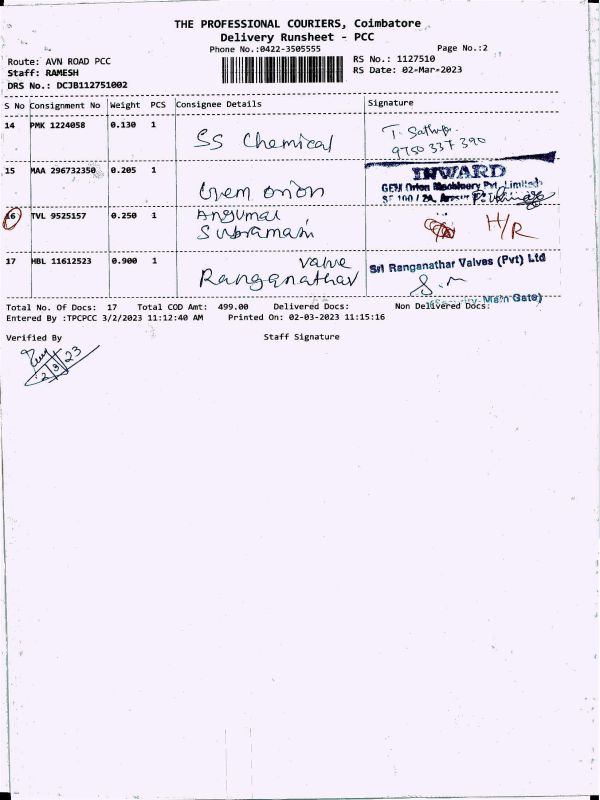 THE PROFESSIONAL COURIERS, Coimbatore
Delivery Runsheet - PCC
Phone No.:0422-3505555 Page No.:2
Route: AVN ROAD PCC RS No.: 1127510
Staff: RAMESH RS Date: 02-Mar-2023
DRS No.: DCJB112751002
S No Consignment No Weight PCS Consignee Details Signature
14 PMK 1224058 0.130 1 SS Chemical T. Sathya
9750 337 390
15 MAA 296732350 0.205 1 Gem orion INWARD
GEM Orion Machinery Pvt. Limited
SF 100 / 2A,
16 TVL 9525157 0.250 1 Angumal H/R
Subramani
17 HBL 11612523 0.900 1 valve Sri Ranganathar Valves (Pvt) Ltd
Ranganathar S.M
(Security-Main Gate)
Total No. Of Docs: 17 Total COD Amt: 499.00 Delivered Docs: Non Delivered Docs:
Entered By :TPCPCC 3/2/2023 11:12:40 AM Printed On: 02-03-2023 11:15:16
Verified By Staff Signature
2/3/23